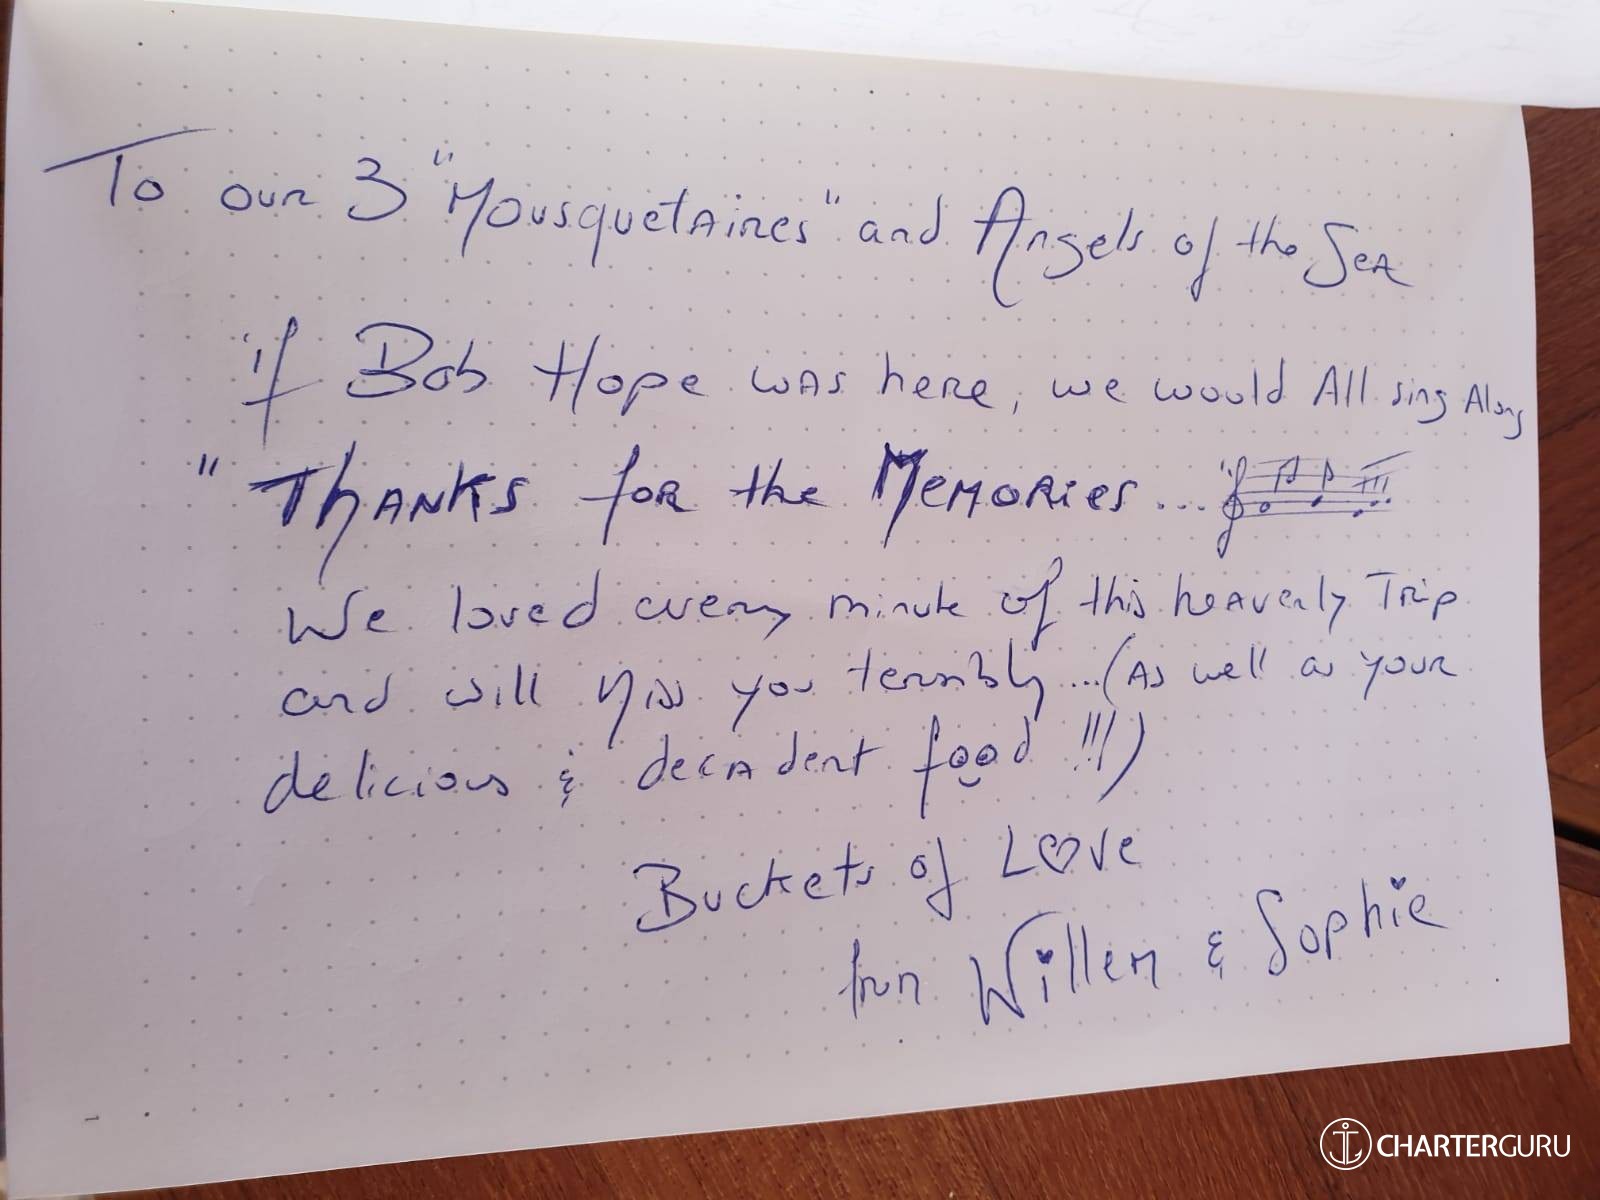 To our 3 "Mousquetaires" and Angels of the Sea
'if Bob Hope was here, we would All sing Along
"Thanks for the Memories..."
We loved every minute of this heavenly Trip
and will Miss you terribly...(As well as your
delicious & decadent food !!!)
Buckets of Love
from Willem & Sophie
CHARTERGURU